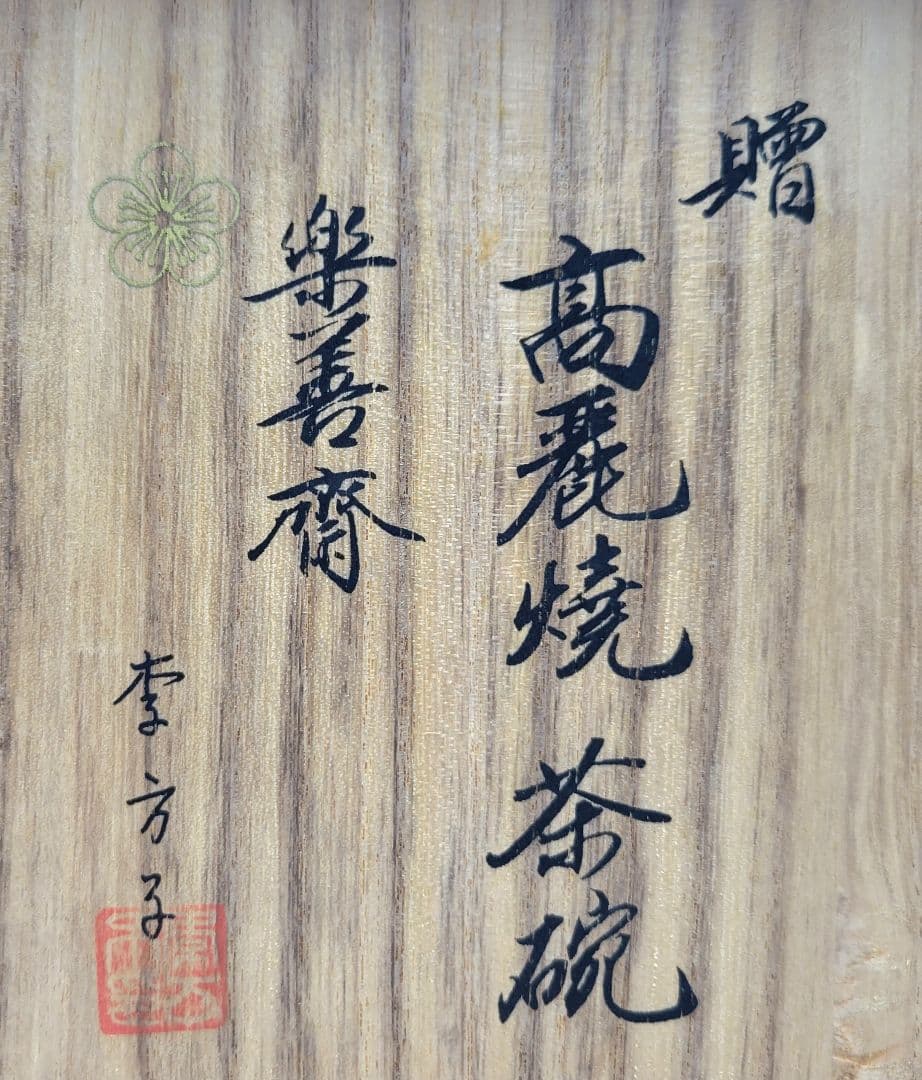 贈
高麗燒 茶碗
樂善齋
李方子